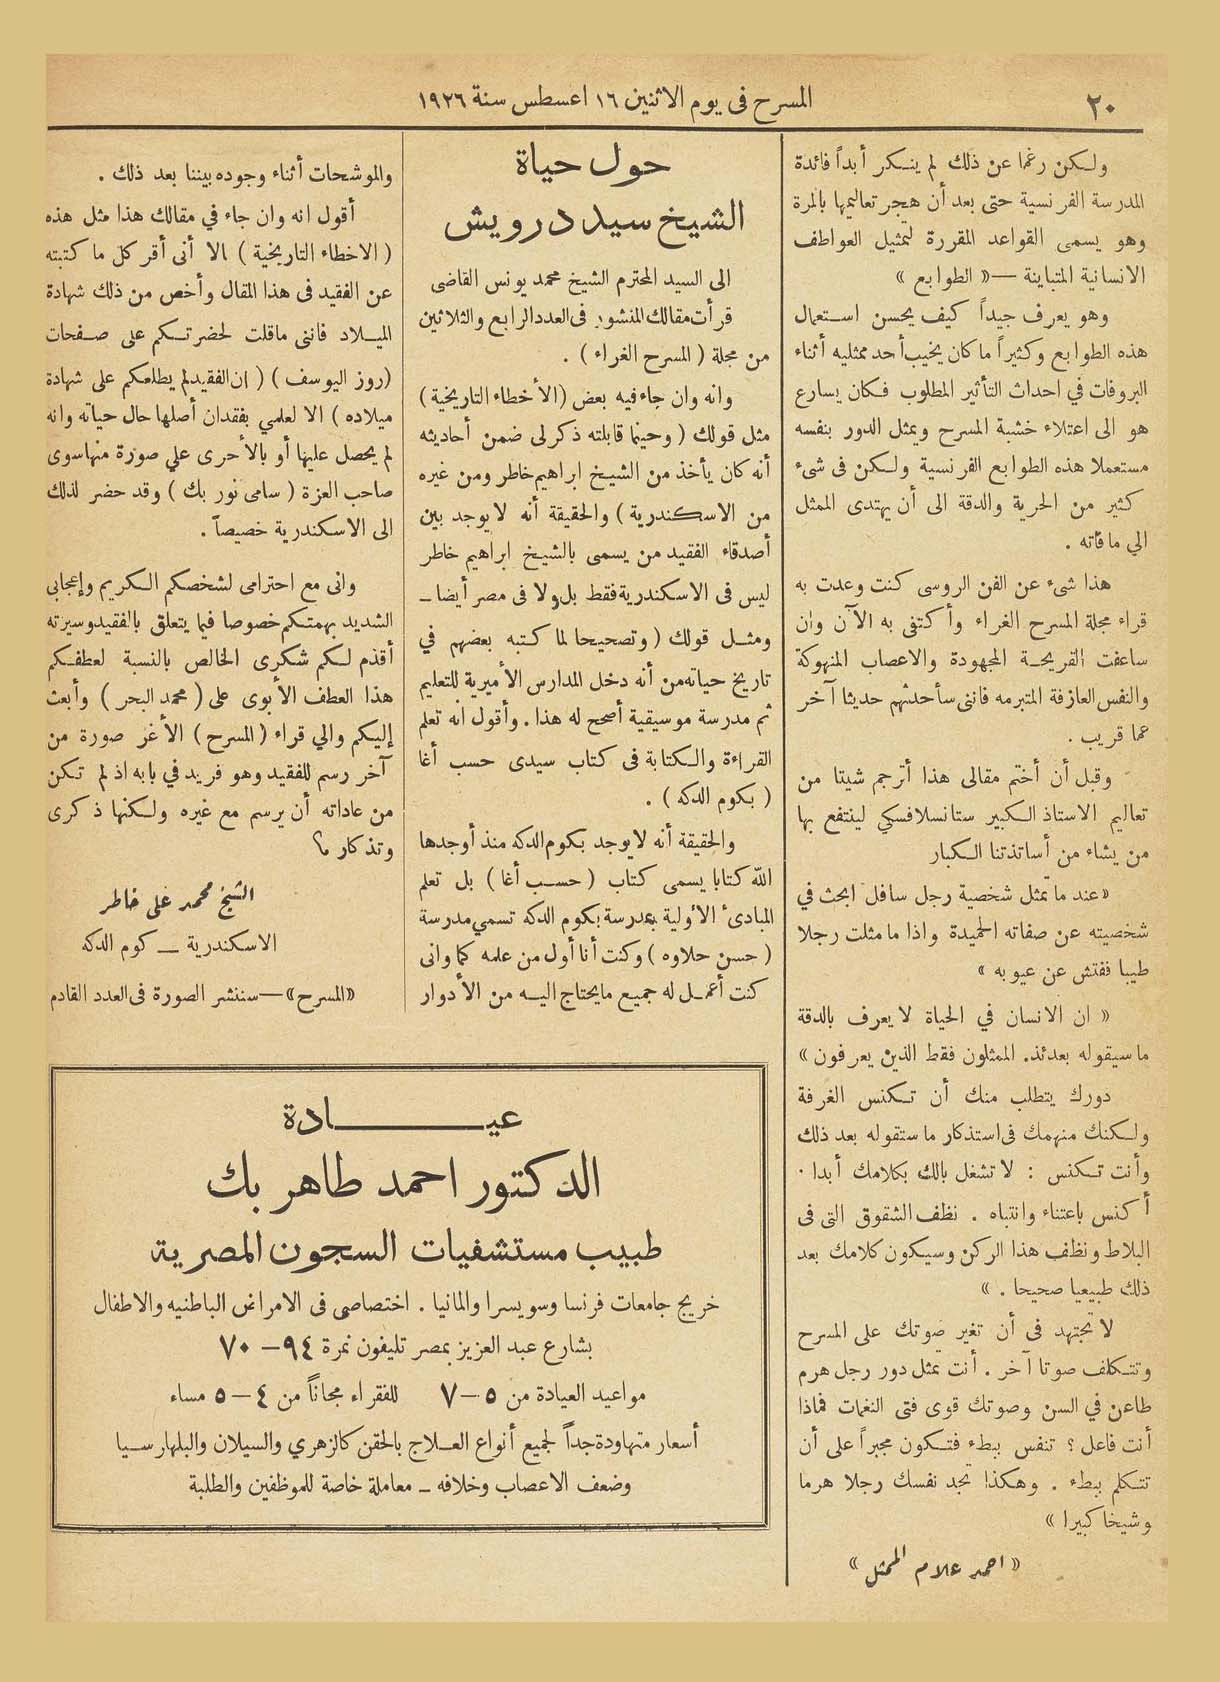 ٢٠
المسرح فى يوم الاثنين ١٦ اعسطس سنة ١٩٢٦
ولكن رغما عن ذلك لم ينكر أبداً فائدة
المدرسة الفرنسية حتى بعد أن هجر تعاليمها بالمرة
وهو يسمى القواعد المقررة لتمثيل العواطف
الانسانية المتباينة —« الطوابع »
وهو يعرف جيداً كيف يحسن استعمال
هذه الطوابع وكثيراً ما كان يخيب أحد ممثليه أثناء
البروفات في احداث التأثير المطلوب فكان يسارع
هو الى اعتلاء خشبة المسرح ويمثل الدور بنفسه
مستعملا هذه الطوابع الفرنسية ولكن فى شىء
كثير من الحرية والدقة الى أن يهتدى الممثل
الي مافاته .
هذا شىء عن الفن الروسى كنت وعدت به
قراء مجلة المسرح الغراء وأكتفى به الآن وان
ساعفت القريحة المجهودة والاعصاب المنهوكة
والنفس العازفة المتبرمه فاننى سأحدثهم حديثا آخر
عما قريب .
وقبل أن أختم مقالى هذا أترجم شيتا من
تعاليم الاستاذ الكبير ستانسلافسكي لينتفع بها
من يشاء من أساتذتنا الكبار
«عند ما تمثل شخصية رجل سافل ابحث في
شخصيته عن صفاته الحميدة واذا ما مثلت رجلا
طيبا ففتش عن عيوبه »
« ان الانسان في الحياة لا يعرف بالدقة
ماسيقوله بعدئذ. الممثلون فقط الذين يعرفون »
دورك يتطلب منك أن تكنس الغرفة
ولكنك منهمك فى استذكار ماستقوله بعد ذلك
وأنت تكنس : لا تشغل بالك بكلامك أبدا .
أكنس باعتناء وانتباه . نظف الشقوق التى فى
البلاط ونظف هذا الركن وسيكون كلامك بعد
ذلك طبيعيا صحيحا . »
لا تجتهد فى أن تغير صوتك على المسرح
وتتكلف صوتا آخر . أنت تمثل دور رجل هرم
طاعن في السن وصوتك قوى فتى النغمات فماذا
أنت فاعل ؟ تنفس ببطء فتكون مجبراً على أن
تتكلم ببطء . وهكذا تجد نفسك رجلا هرما
وشيخا كبيرا »
« احمد علام الممثل »
حول حياة
الشيخ سيد درويش
الى السيد المحترم الشيخ محمد يونس القاضى
قرأت مقالك المنشور فى العدد الرابع والثلاثين
من مجلة ( المسرح الغراء ) .
وانه وان جاء فيه بعض (الأخطاء التاريخية)
مثل قولك ( وحينما قابلته ذكر لى ضمن أحاديثه
أنه كان يأخذ من الشيخ ابراهيم خاطر ومن غيره
من الاسكندرية ) والحقيقة أنه لا يوجد بين
أصدقاء الفقيد من يسمى بالشيخ ابراهيم خاطر
ليس فى الاسكندرية فقط بل ولا فى مصر أيضا ــ
ومثل قولك ( وتصحيحا لما كتبه بعضهم في
تاريخ حياته من أنه دخل المدارس الأميرية للتعليم
ثم مدرسة موسيقية أصحح له هذا . وأقول انه تعلم
القراءة والكتابة فى كتاب سيدى حسب أغا
( بكوم الدكه ) .
والحقيقة أنه لا يوجد بكوم الدكه منذ أوجدها
الله كتابا يسمى كتاب ( حسب أغا ) بل تعلم
المبادىء الأولية بمدرسة بكوم الدكه تسمي مدرسة
( حسن حلاوه ) وكنت أنا أول من علمه كما وانى
كنت أعمل له جميع مايحتاج اليه من الأدوار
والموشحات أثناء وجوده بيننا بعد ذلك .
أقول انه وان جاء في مقالك هذا مثل هذه
( الاخطاء التاريخية ) الا أنى أقر كل ما كتبته
عن الفقيد فى هذا المقال وأخص من ذلك شهادة
الميلاد فاننى ماقلت لحضرتكم على صفحات
(روز اليوسف ) ( ان الفقيد لم يطلعكم على شهادة
ميلاده ) الا لعلمي بفقدان أصلها حال حياته وانه
لم يحصل عليها أو بالأحرى علي صورة منها سوى
صاحب العزة ( سامى نور بك ) وقد حضر لذلك
الى الاسكندرية خصيصاً .
وانى مع احترامى لشخصكم الكريم وإعجابى
الشديد بهمتكم خصوصا فيما يتعلق بالفقيد وسيرته
أقدم لكم شكرى الخالص بالنسبة لعطفكم
هذا العطف الأبوى على ( محمد البحر ) وأبعث
إليكم والي قراء ( المسرح ) الأغر صورة من
آخر رسم للفقيد وهو فريد في بابه اذ لم تكن
من عاداته أن يرسم مع غيره ولكنها ذكرى
وتذكار
الشيخ محمد على خاطر
الاسكندرية ــ كوم الدكه
«المسرح»—سننشر الصورة فى العدد القادم
عيـــادة
الدكتور احمد طاهر بك
طبيب مستشفيات السجون المصرية
خريج جامعات فرنسا وسويسرا والمانيا . اختصاصى فى الامراض الباطنيه والاطفال
بشارع عبد العزيز بمصر تليفون نمرة ٩٤—٧٠
مواعيد العيادة من ٥—٧ للفقراء مجاناً من ٤—٥ مساء
أسعار متهاودة جداً لجميع أنواع العلاج بالحقن كالزهري والسيلان والبلهارسيا
وضعف الاعصاب وخلافه ــ معاملة خاصة للموظفين والطلبة